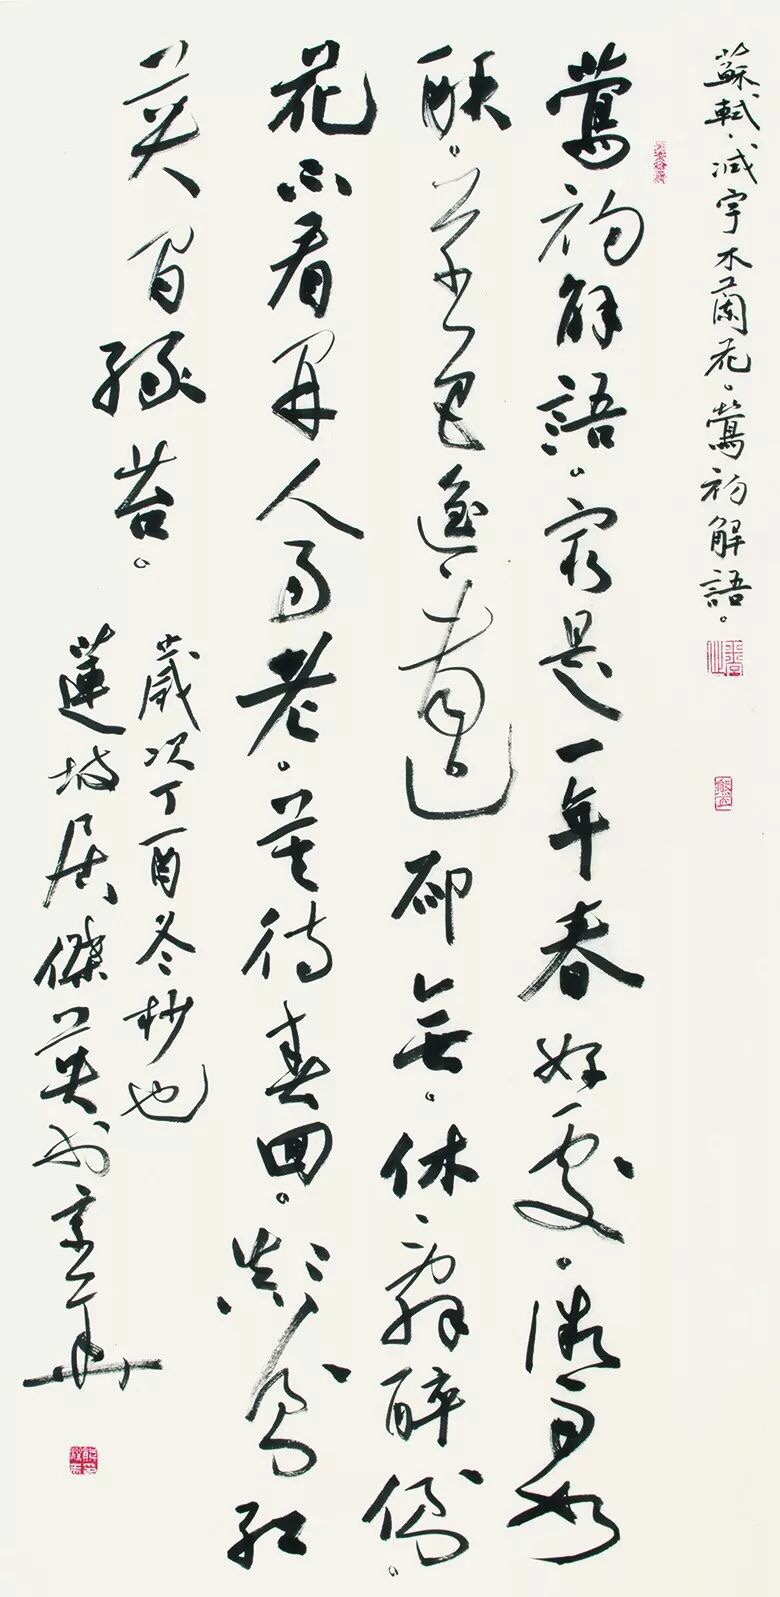 蘇軾·減字木蘭花。鶯初解語。
鶯初解語。最是一年春好處。微雨如
酥。草色遙看近卻無。休辭醉倒。
花不看開人易老。莫待春回。顛倒紅
英間綠苔。
歲次丁酉冬杪也
蓮坡居傑英於京華